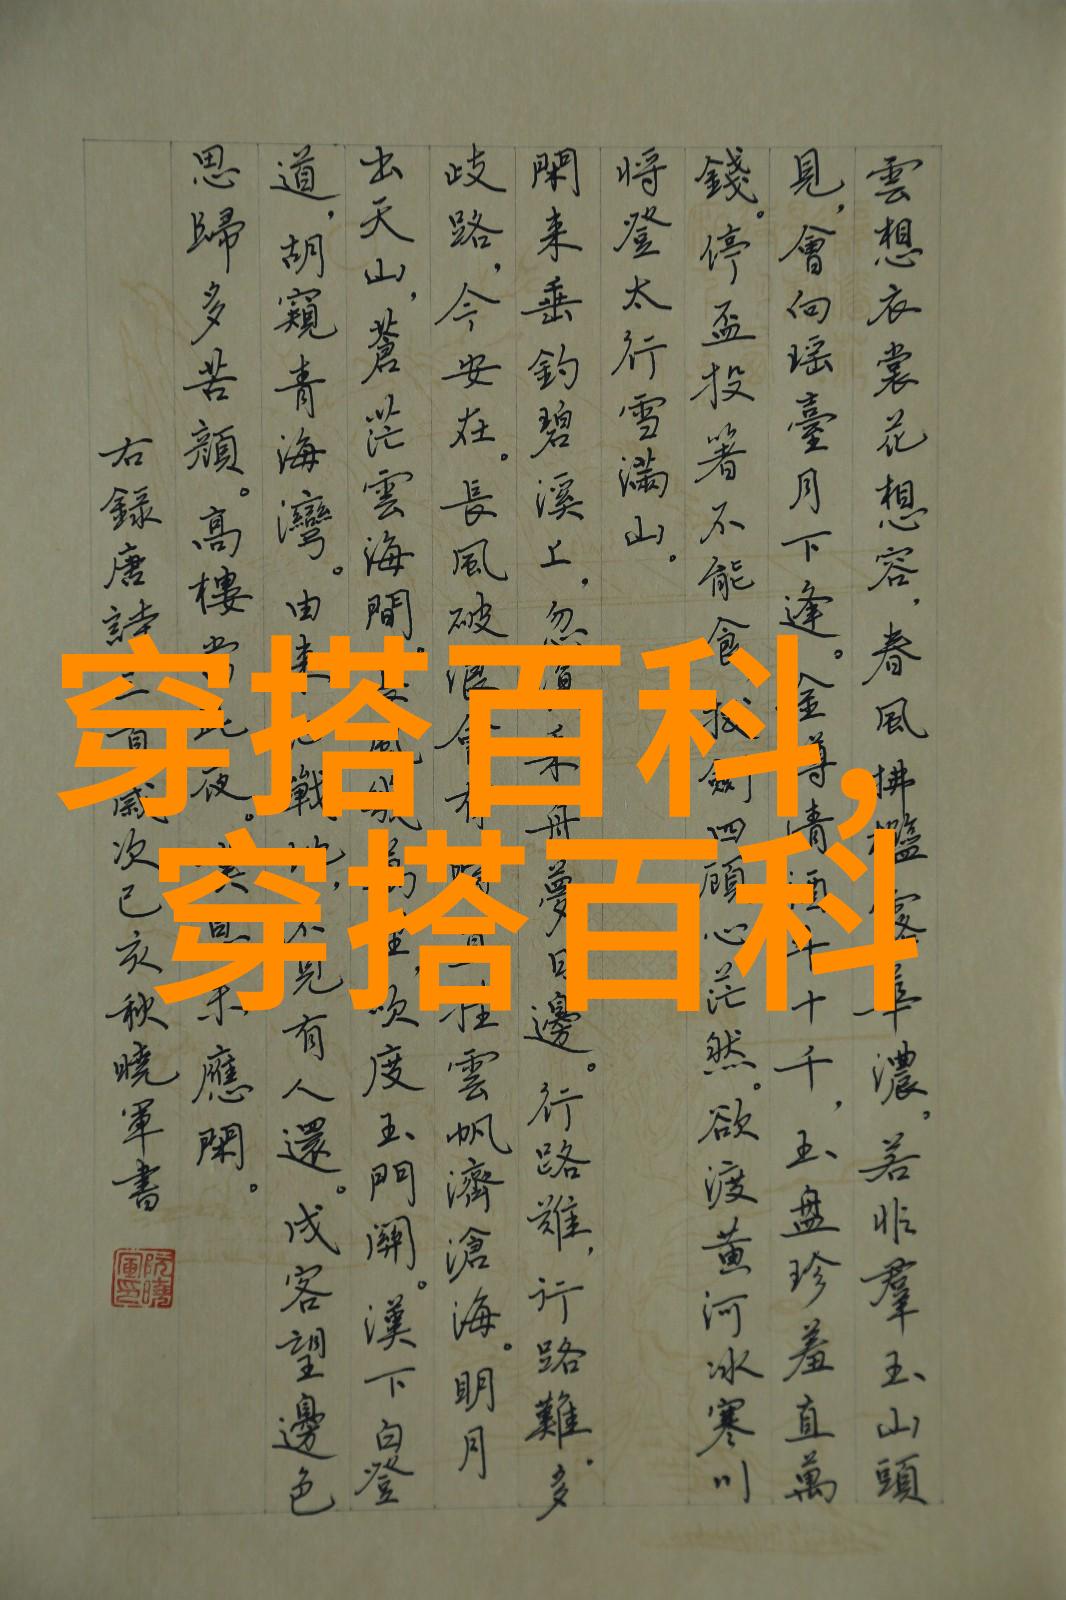 雲想衣裳花想容，春風拂檻露華濃。若非羣玉山頭
見，會向瑶臺月下逢。金尊清酒斗十千，玉盤珍羞直萬
錢。停盃投箸不能食拔劍四顧心茫然。欲渡黃河冰寒川
將登太行雪滿山。
閑来垂釣碧溪上，忽復乘舟夢日邊。行路難，行路難。多
歧路，今安在。長風破浪會有直挂雲帆濟滄海。明月
出天山，蒼茫雲海間。長風幾萬里，吹度玉門關。漢下白登
道，胡窺青海灣。由来戰地，不見有人還。戍客望邊色
思歸多苦顏。高樓當此夜。嘆息未應閑。
右錄唐詩三首歲次己亥秋曉軍書
阮曉軍印
穿搭百科,
穿搭百科